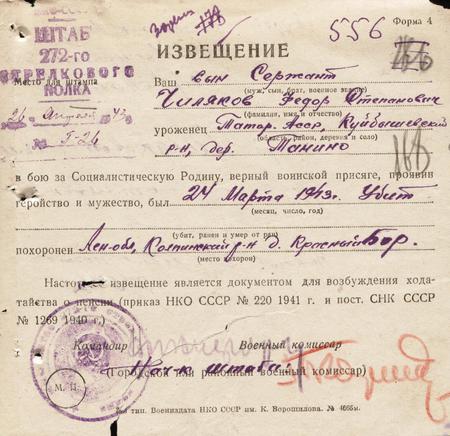 556
Форма 4
ШТАБ
272-го
СТРЕЛКОВОГО
ПОЛКА
Место для штампа
26 Апреля 43
№ Г-26
ИЗВЕЩЕНИЕ
Ваш сын Сержант
(муж, сын, брат, военное звание)
Чиляков Федор Степанович
(фамилия, имя и отчество)
уроженец Татар. Асср, Куйбышевский
(область, район, деревня и село)
р-н, дер. Танино
в бою за Социалистическую Родину, верный воинской присяге, проявив
геройство и мужество, был 24 Марта 1943г. Убит
(месяц, число, год)
(убит, ранен и умер от ран)
похоронен Лен-обл, Колпинский р-н д. Красный Бор.
(место похорон)
Настоящее извещение является документом для возбуждения хода-
тайства о пенсии (приказ НКО СССР № 220 1941 г. и пост. СНК СССР
№ 1269 1940 г.)
Командир
Военный комиссар
(Городской или районный военный комиссар)
Нач-к штаба
М. П.
тип. Воениздата НКО СССР им. К. Ворошилова.